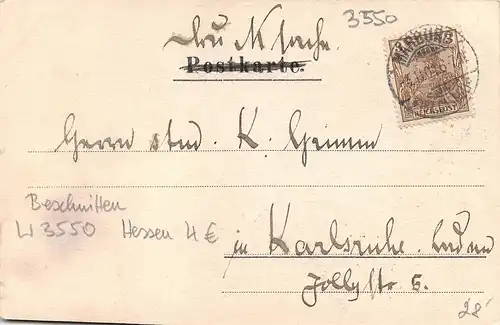 3550
Drucksache.
Postkarte.
MARBURG
Herrn stud. K. Grimm
Beschnitten
W 3550 Hessen 4 €
in Karlsruhe. Baden
Jollystr 5.
28